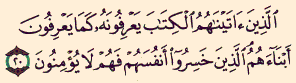 ٱلَّذِينَ ءَاتَيْنَٰهُمُ ٱلْكِتَٰبَ يَعْرِفُونَهُۥ كَمَا يَعْرِفُونَ
أَبْنَآءَهُمُ ٱلَّذِينَ خَسِرُوٓا۟ أَنفُسَهُمْ فَهُمْ لَا يُؤْمِنُونَ ٢٠